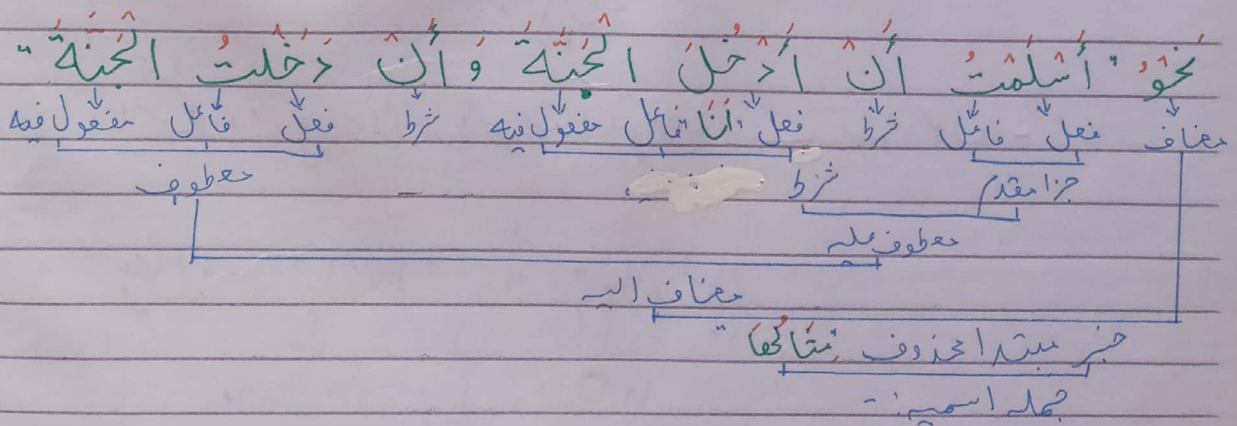 نَحْوُ " أَسْلَمْتُ أَنْ أَدْخُلَ الْجَنَّةَ وَأَنْ دَخَلْتُ الْجَنَّةَ "
مضاف فعل فاعل شرط فعل اَنَا فاعل مفعول فيه شرط فعل فاعل مفعول فيه
جزا مقدم شرط معطوف
معطوف عليه
مضاف اليه
خبر مبتدا محذوف مِثَالُھَا
جمله اسميه :-